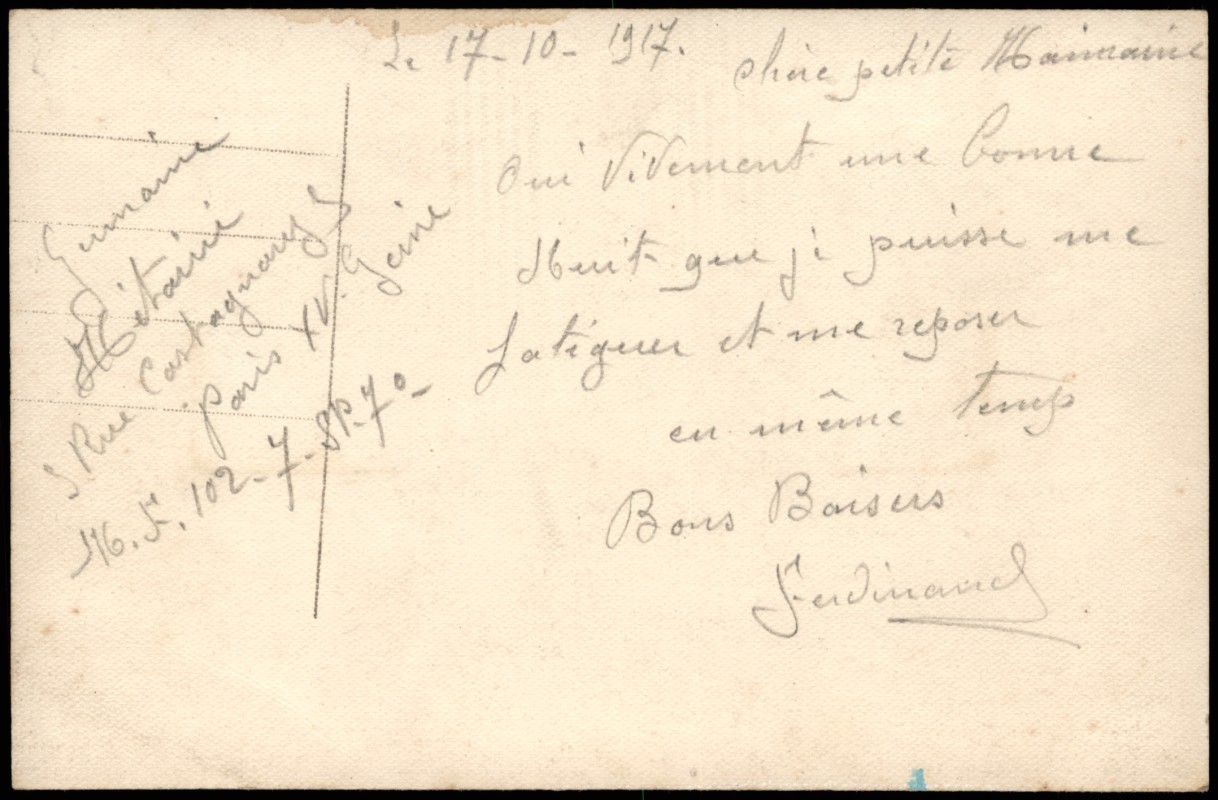 Le 17-10-1917.
chère petite Mainaine
Oui Vivement une bonne
Nuit que je puisse me
fatiguer et me reposer
en même temp
Bons Baisers
Ferdinand
Germaine
Métairie
5 Rue Castagnary 5
Paris XV. Seine
M.F. 102-7-SP.70-